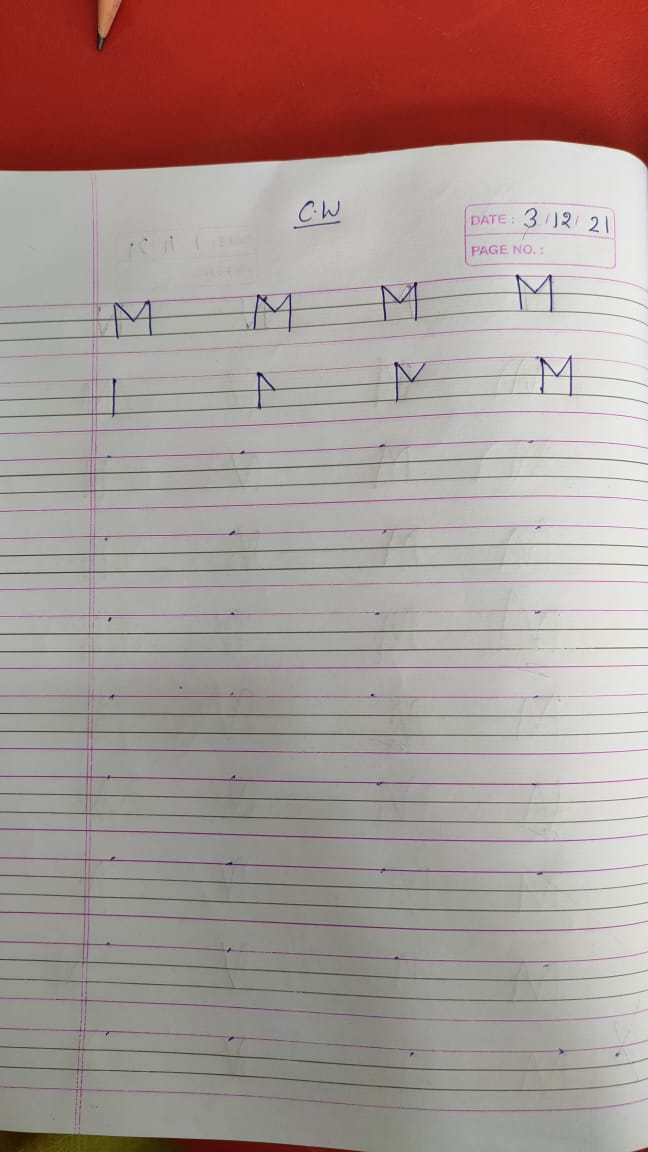 C.W
DATE: 3/12/21
PAGE NO.:
M M M M
M